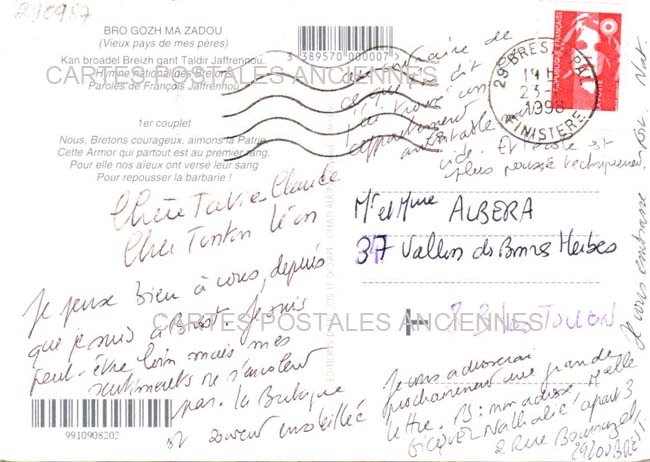 BRO GOZH MA ZADOU
(Vieux pays de mes pères)
Kan broadel Breizh gant Taldir Jaffrennou.
Hymne national des Bretons
Paroles de François Jaffrennou
1er couplet
Nous, Bretons courageux, aimons la Patrie,
Cette Armor qui partout est au premier rang.
Pour elle nos aïeux ont versé leur sang
Pour repousser la barbarie !
3 389570 000007
CARTES POSTALES ANCIENNES
29 BREST
23-
1998
FINISTERE
REPUBLIQUE FRANÇAISE
Chère Tatie-Claude
Cher Tonton Léon
Je pense bien à vous, depuis
que je suis à Brest. Je suis
peut-être loin mais mes
sentiments ne s'envolent
pas. La Bretagne
est souvent ensoleillée
ce qu'on dit
j'ai trouvé un
appartement
vide. Et l'école est
plus poussée techniquement.
Je vous adresserai
prochainement une grande
lettre. PS : mon adresse Melle
GICQUEL Nathalie apart 3
2 Rue
29200 BREST.
Je vous embrasse. Nat.
Mr et Mme ALBERA
37 Vallon des Bonnes Herbes
TOULON
CARTES POSTALES ANCIENNES
9910908202